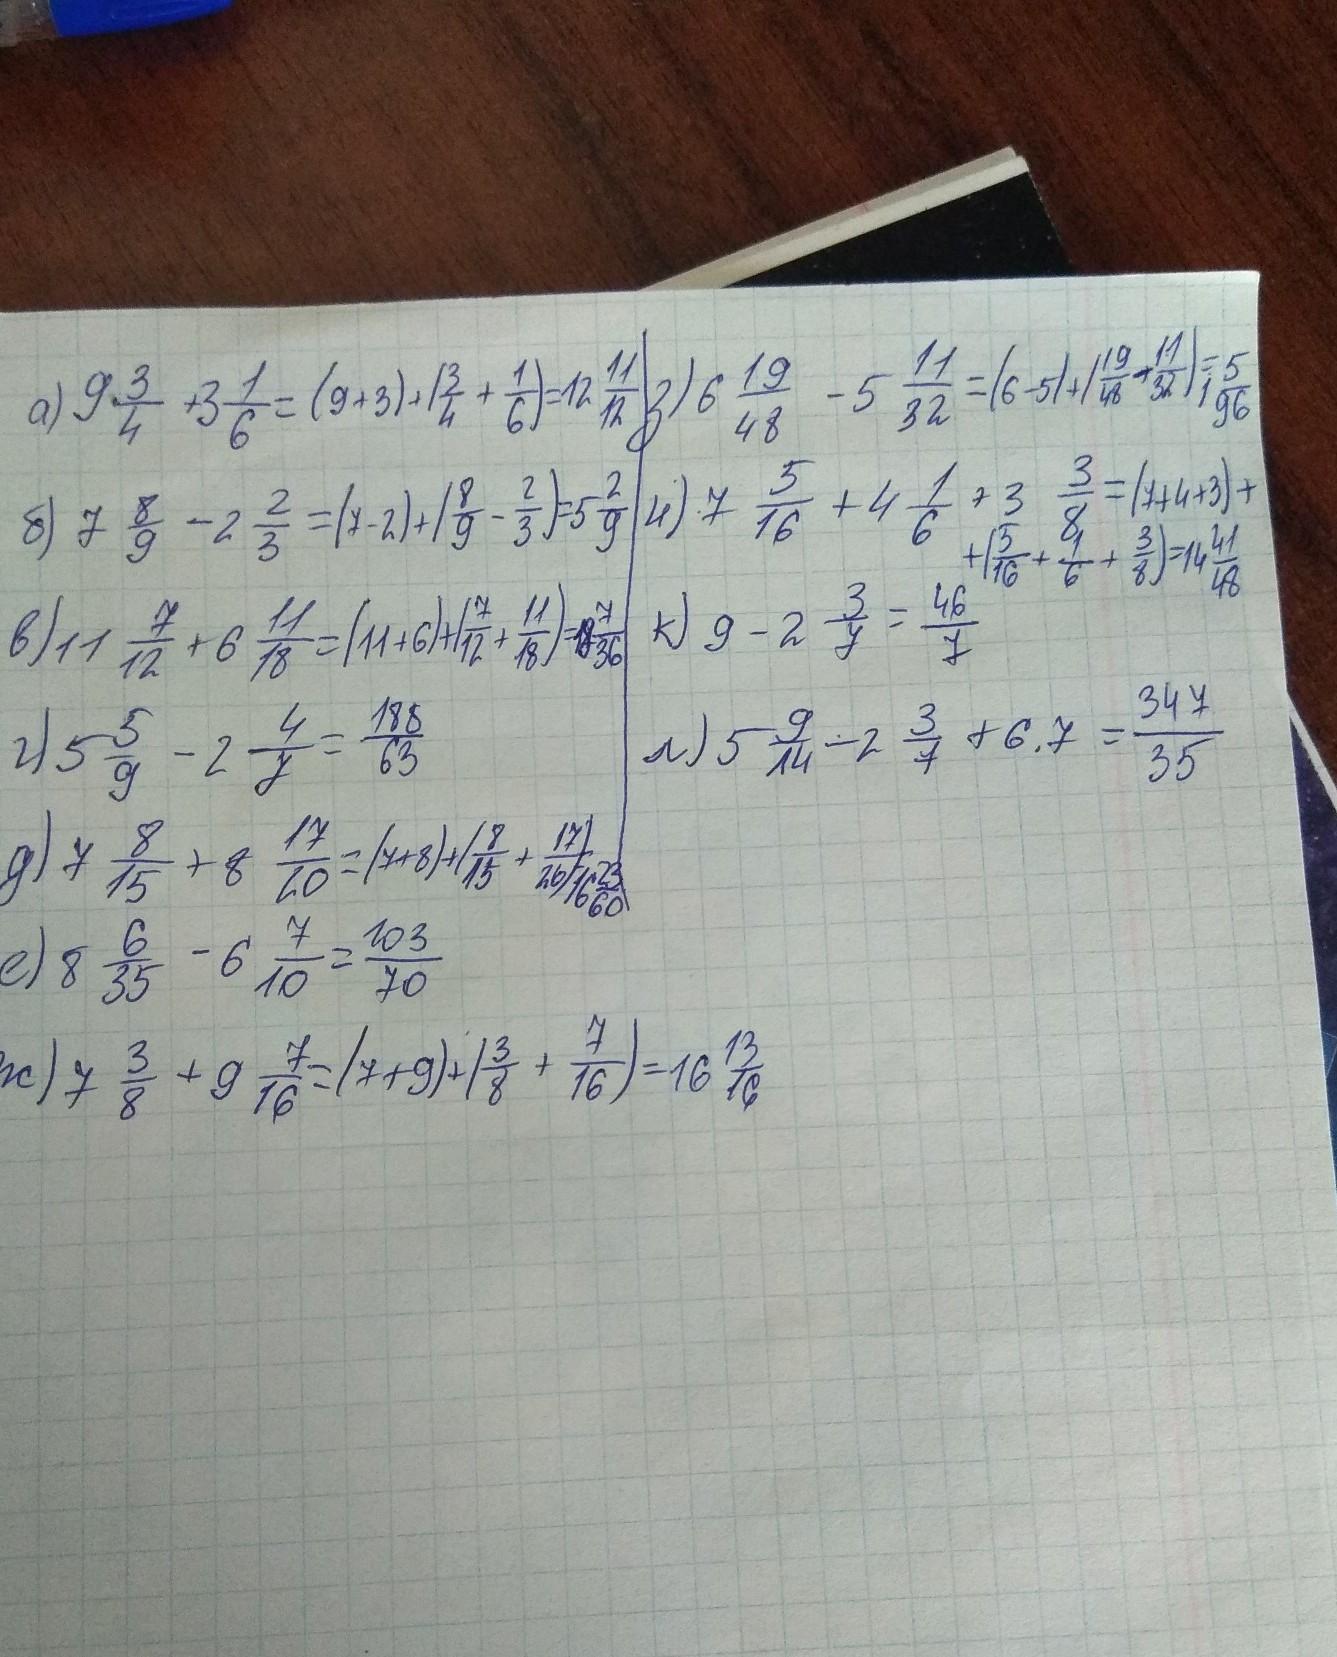 а) 9 3/4 + 3 1/6 = (9+3)+(3/4 + 1/6)=12 11/12
б) 7 8/9 - 2 2/3 = (7-2)+(8/9 - 2/3)=5 2/9
в) 11 7/12 + 6 11/18 = (11+6)+(7/12 + 11/18)= 7/36
г) 5 5/9 - 2 4/7 = 188/63
д) 7 8/15 + 8 17/20 = (7+8)+(8/15 + 17/20) 16 23/60
е) 8 6/35 - 6 7/10 = 103/70
ж) 7 3/8 + 9 7/16 = (7+9)+(3/8 + 7/16)=16 13/16
з) 6 19/48 - 5 11/32 = (6-5)+(19/48 - 11/32)=1 5/96
и) 7 5/16 + 4 1/6 + 3 3/8 = (7+4+3)+
+(5/16 + 1/6 + 3/8)=14 41/48
к) 9 - 2 3/7 = 46/7
л) 5 9/14 - 2 3/7 + 6.7 = 347/35